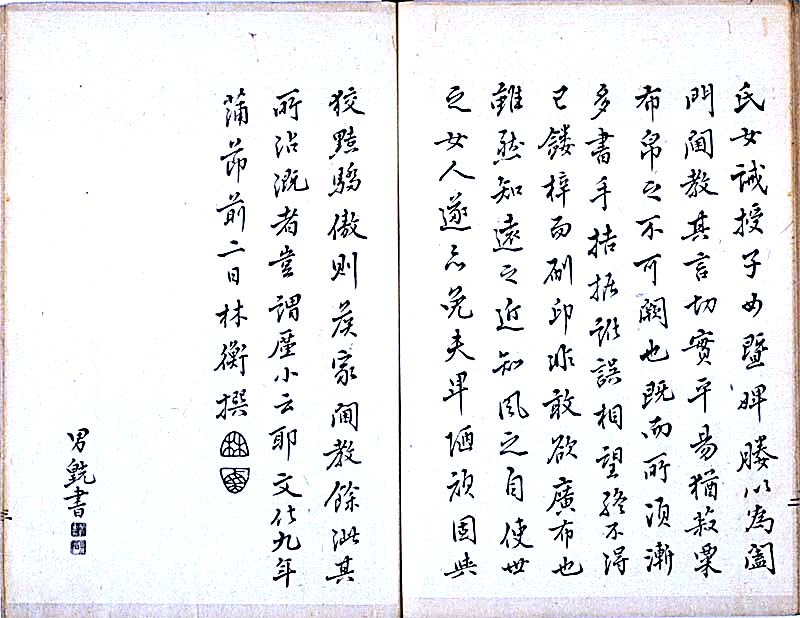 氏女誡授子女曁婢媵以為閫
門閫教其言切實平易猶菽粟
布帛之不可闕也既而所須漸
多書手拮据訛誤相望終不得
已鏤梓而刷印非敢欲廣布也
雖然知遠之近知風之自使世
之女人遂忘先夫卑陋頑固與
狡黠驕傲則侯家閫教餘澨其
所沾溉者豈謂歴小云耶文化九年
蒲節前二日林衡撰
男㲄書